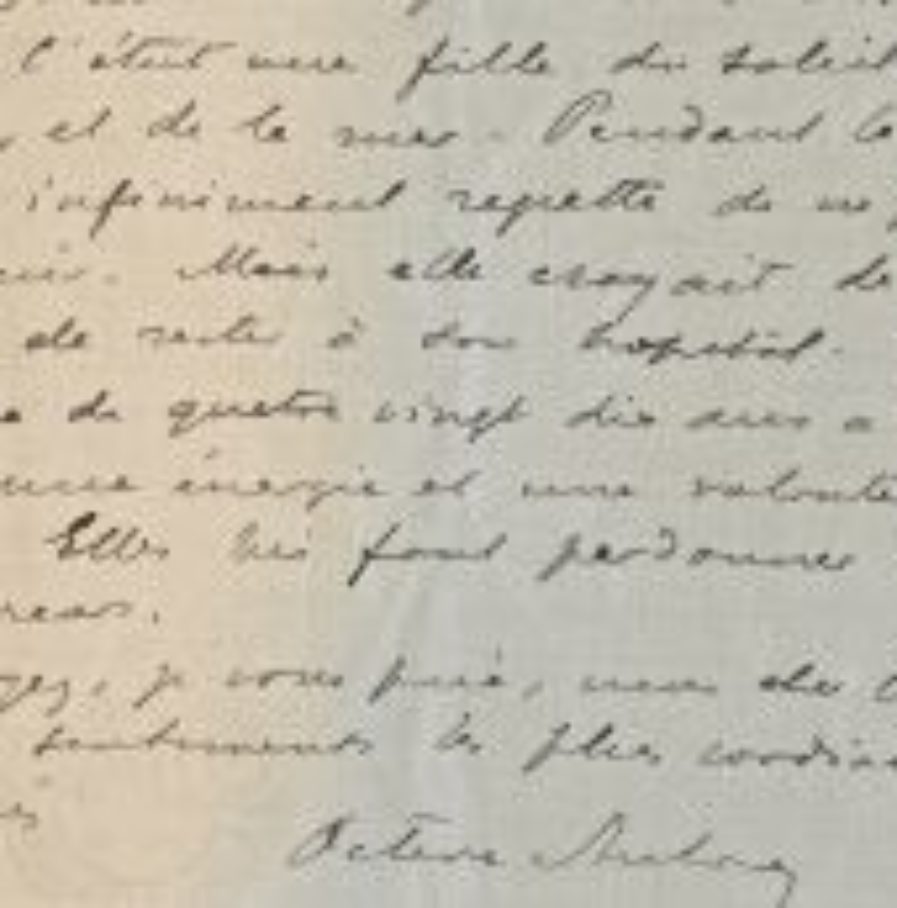 C'était une fille du soleil
et de la mer - Pendant le
infiniment regretté de ne
Mais elle croyait de
de rester à son hopital.
de quatre vingt dix ans a
une énergie et une volonté
Elles lui font pardonner

je vous prie, mon cher
sentiments les plus cordiau
Octave Aubry